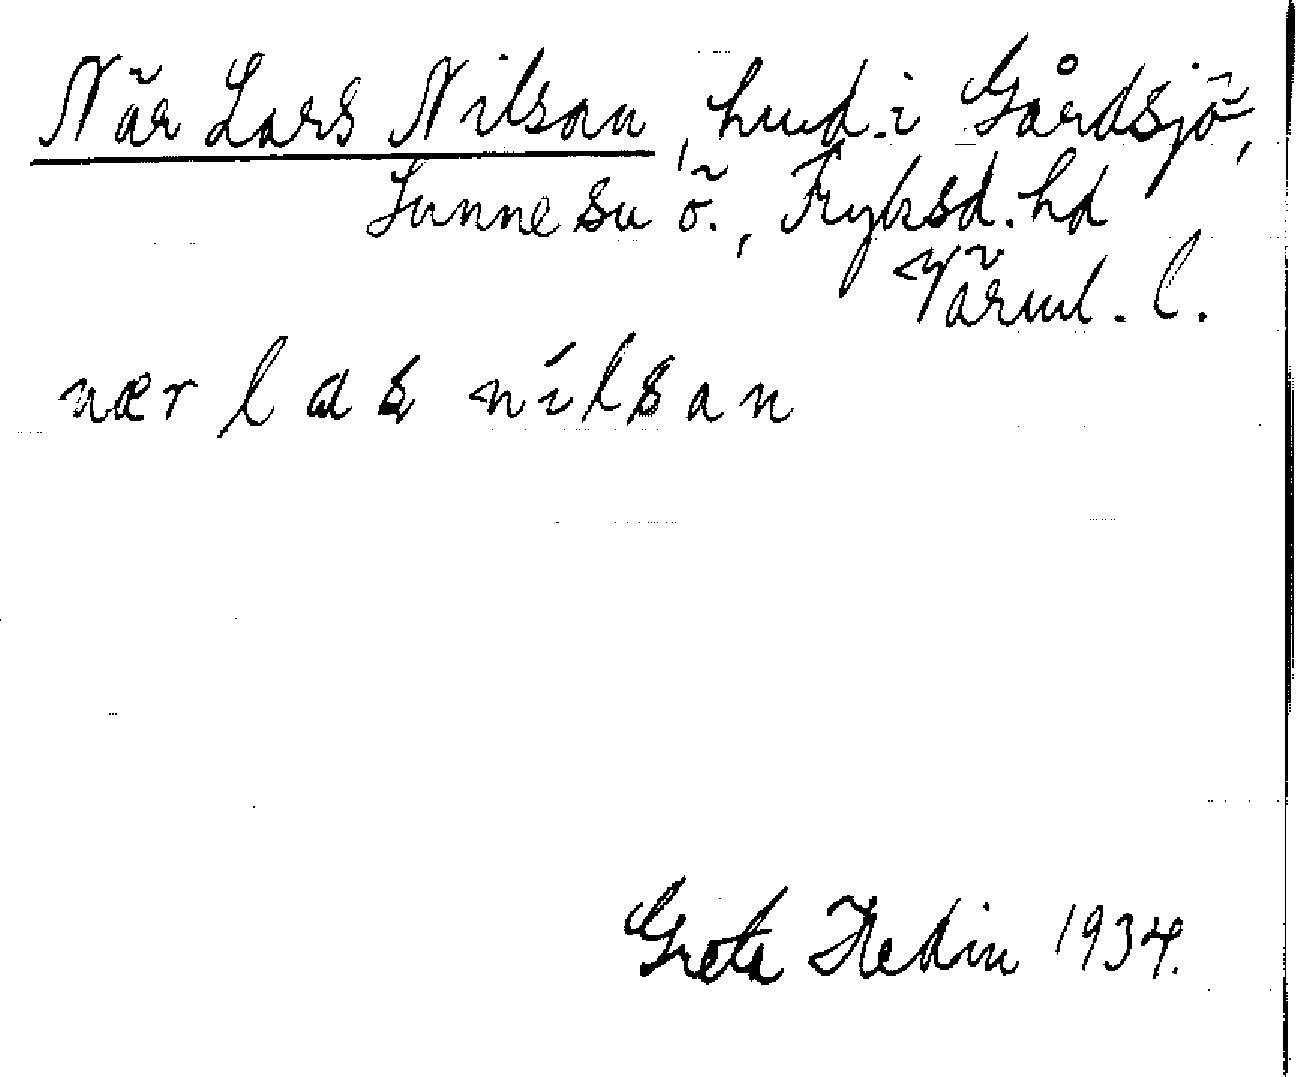 När Lars Nilsan, hmd. i Gårdsjö,
Sunne su ö., Fryksd. hd
Värml. l.
nær las nilsan
Greta Hedin 1934.